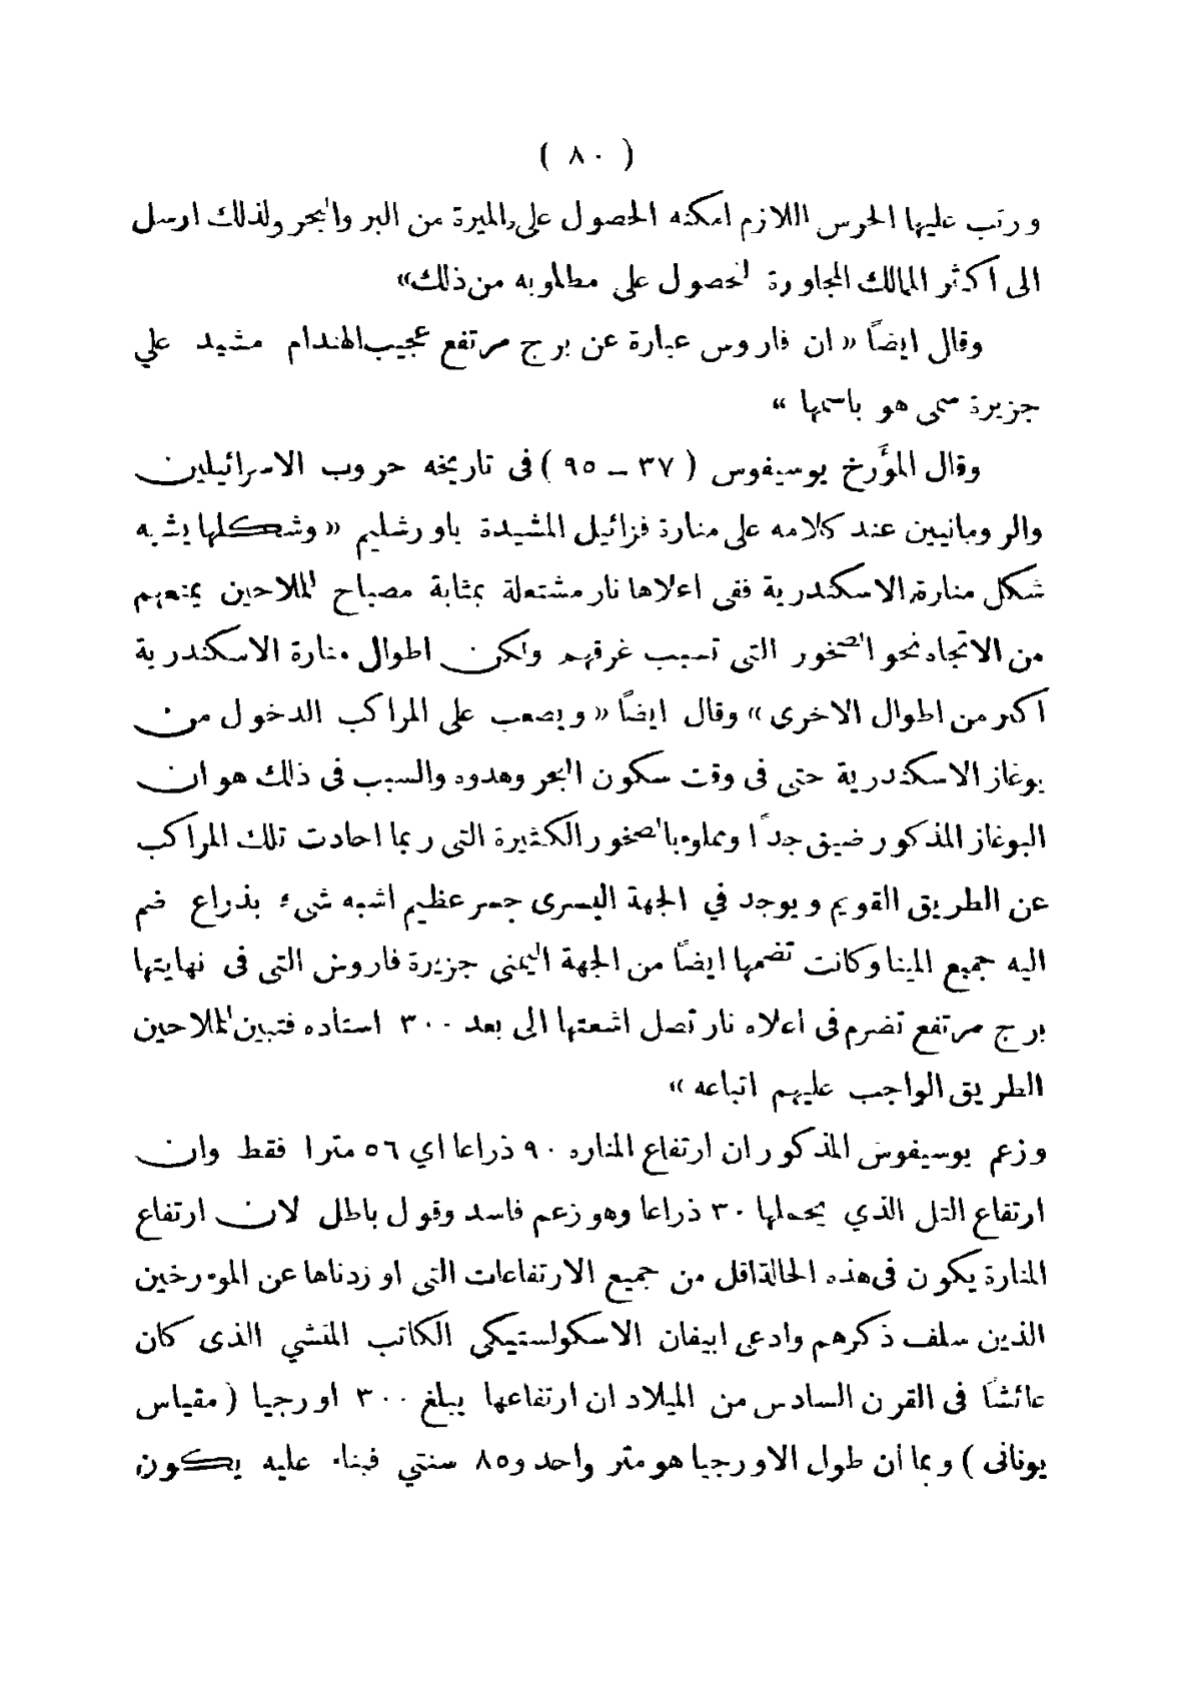 ( ٨٠ )
ورتب عليها الحرس اللازم امكنه الحصول على الميرة من البر والبحر ولذلك ارسل
الى اكثر الممالك المجاورة لحصول على مطلوبه من ذلك»
وقال ايضاً « ان فاروس عبارة عن برج مرتفع عجيب الهندام مشيد علي
جزيرة سمى هو باسمها “
وقال المؤَرخ يوسيفوس ( ٣٧ – ٩٥ ) فى تاريخه حروب الاسرائيلين
والرومانيين عند كلامه على منارة فزائيل المشيدة باورشليم « وشكلها يشبه
شكل منارة الاسكندرية ففى اعلاها نار مشتعلة بمثابة مصباح للملاحين يمنعهم
من الاتجاه نحو الصخور التى تسبب غرقهم ولكن اطوال منارة الاسكندرية
اكبر من اطوال الاخرى » وقال ايضاً « ويصعب على المراكب الدخول من
بوغاز الاسكندرية حتى فى وقت سكون البحر وهدوه والسبب فى ذلك هو ان
البوغاز المذكور ضيق جداً ومملوء بالصخور الكثيرة التى ربما احادت تلك المراكب
عن الطريق القويم ويوجد في الجهة اليسرى جسر عظيم اشبه شىء بذراع ضم
اليه جميع المينا وكانت تضمها ايضاً من الجهة اليمنى جزيرة فاروس التى فى نهايتها
برج مرتفع تضرم فى اعلاه نار تصل اشعتها الى بعد ٣٠٠ استاده فتبين للملاحين
الطريق الواجب عليهم اتباعه »
وزعم يوسيفوس المذكور ان ارتفاع المناره ٩٠ ذراعا اي ٥٦ مترا فقط وان
ارتفاع التل الذي يحملها ٣٠ ذراعا وهو زعم فاسد وقول باطل لان ارتفاع
المنارة يكون فى هذه الحالة اقل من جميع الارتفاعات التى اوزدناها عن الموءرخين
الذين سلف ذكرهم وادعى ابيفان الاسكولستيكى الكاتب المنشي الذى كان
عائشاً فى القرن السادس من الميلاد ان ارتفاعها يبلغ ٣٠٠ اورجيا ( مقياس
يونانى ) وبما أن طول الاورجيا هو متر واحد و٨٥ سنتي فبناء عليه يكون